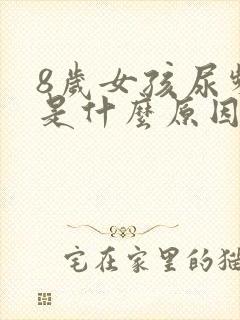 8歲女孩尿頻
是什麼原因
宅在家里的貓